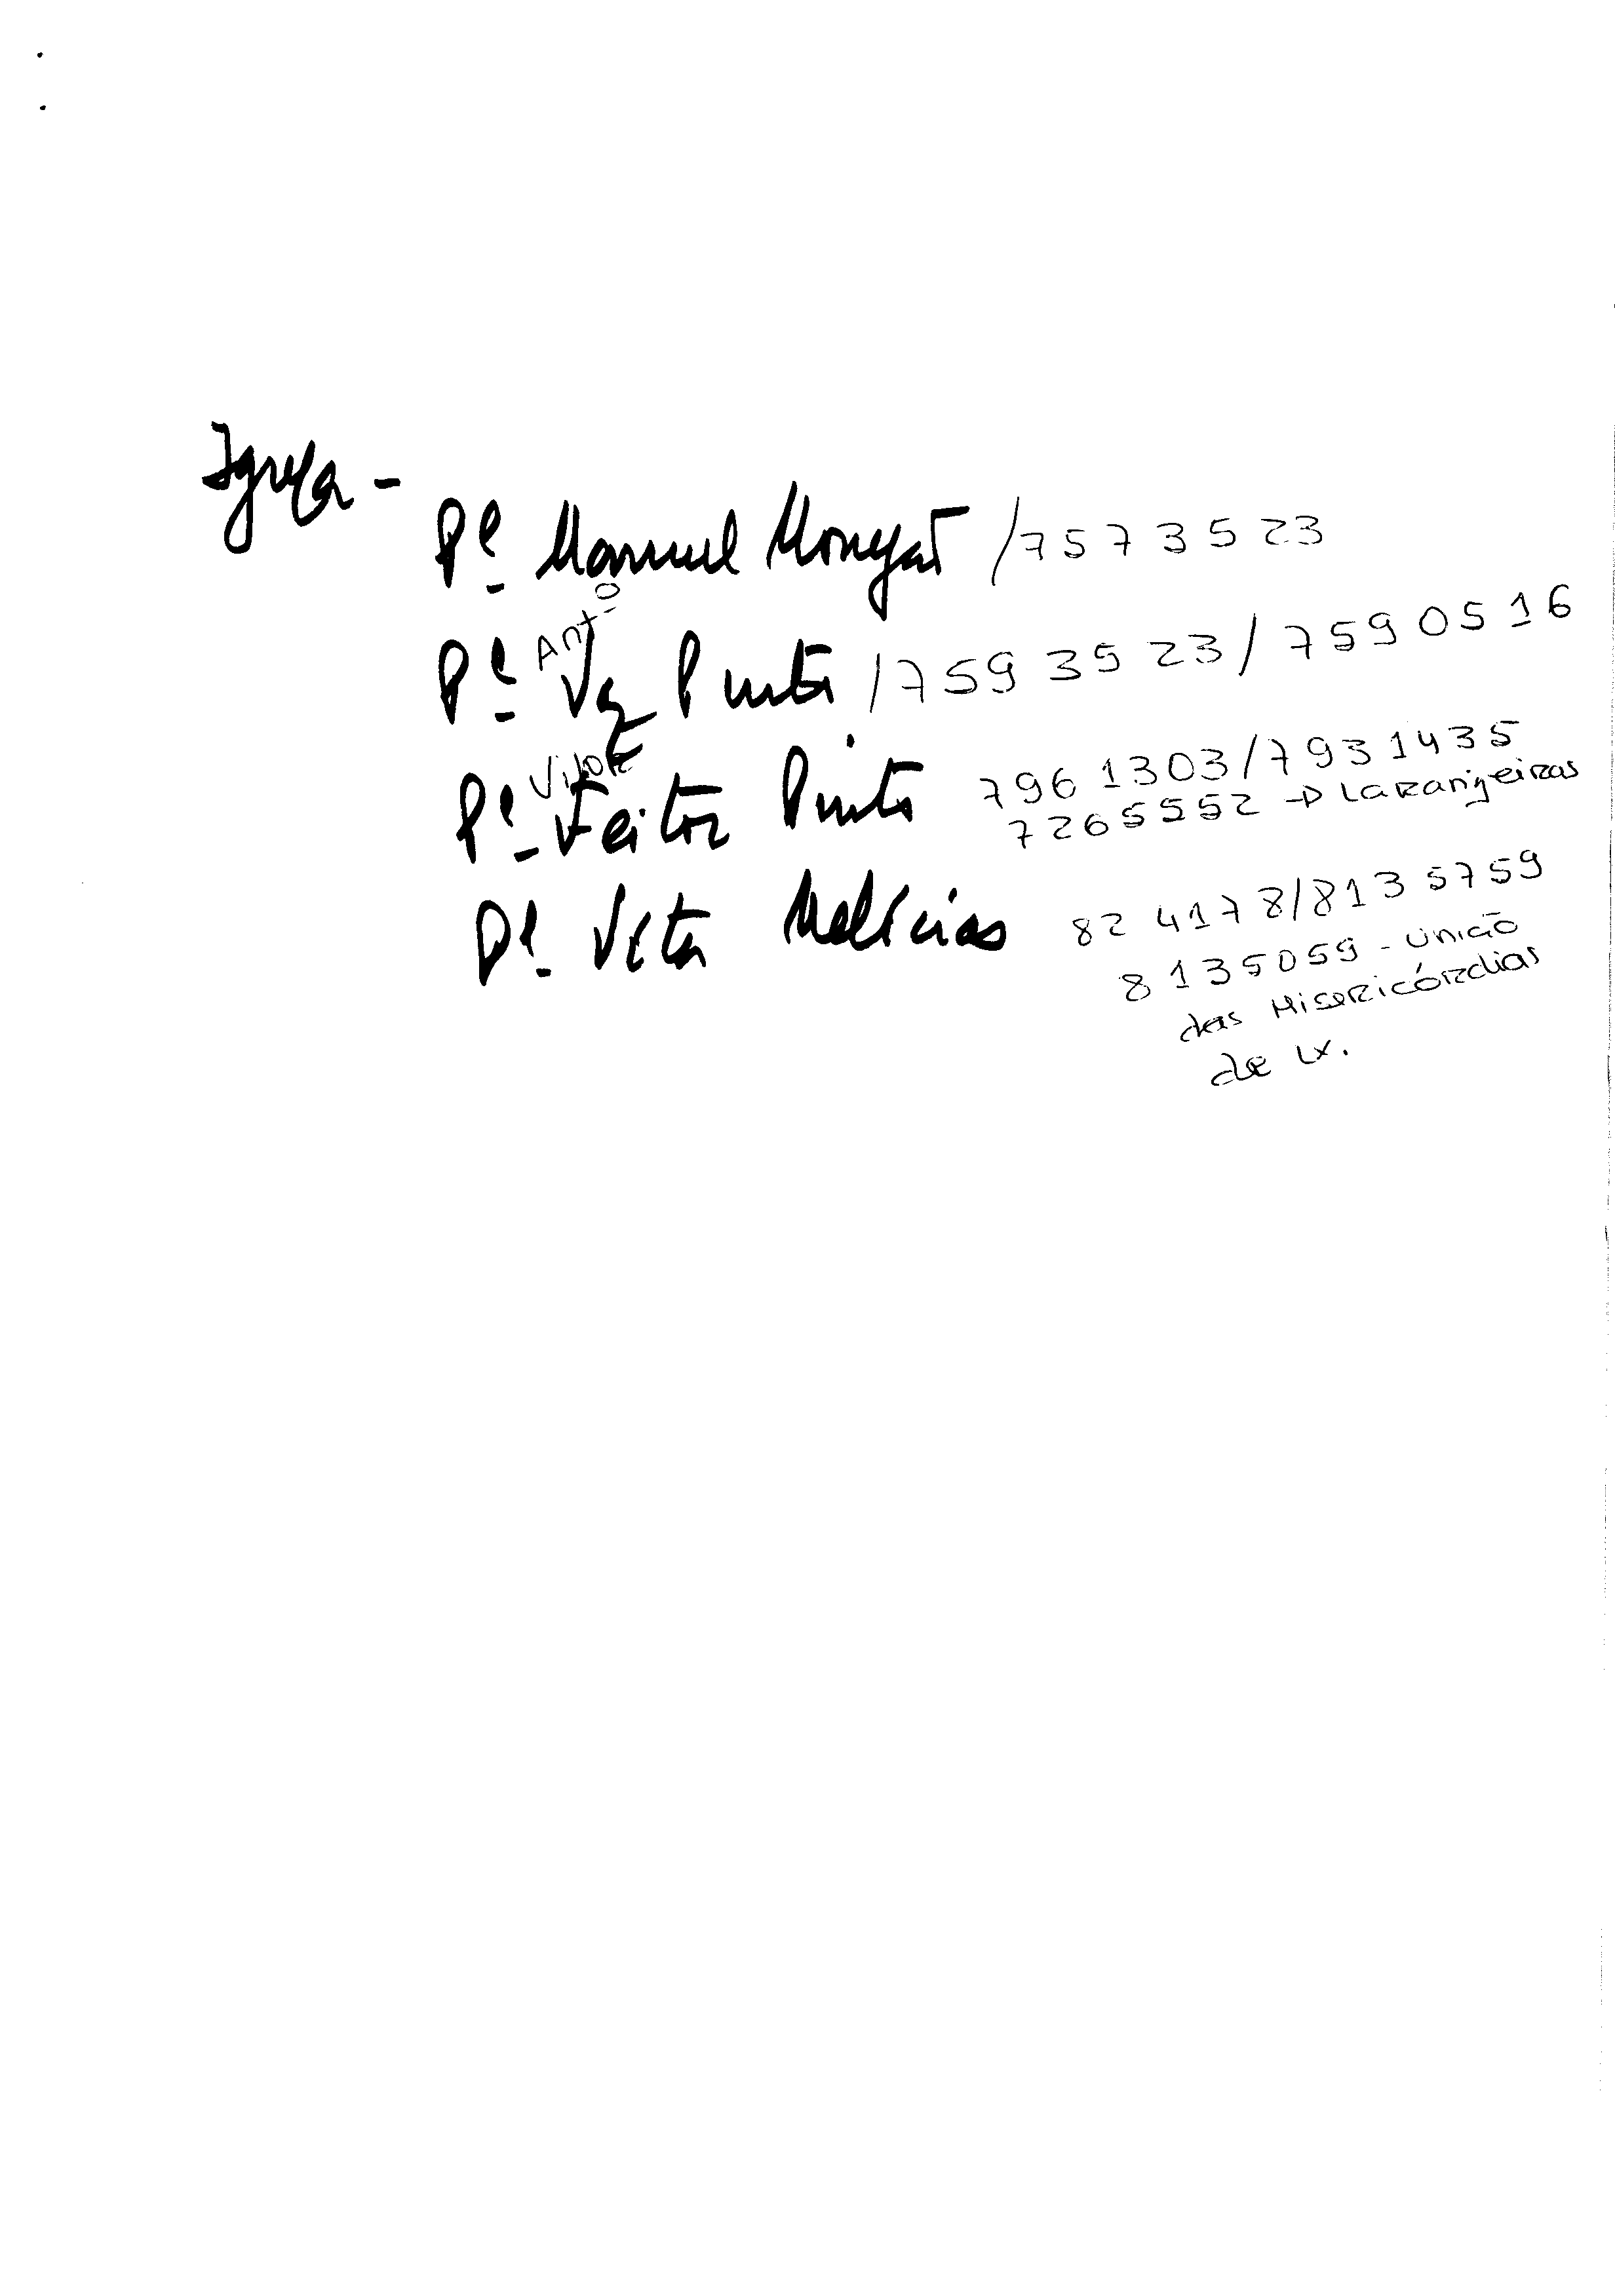 Igreja -
Pe. Manuel Morujão /7573523
Antº
Pe. Vaz Pinto /7593523/7590516
Vitor
Pe. Feitor Pinto 7961303/7931435
7265552 → Laranjeiras
Pe. Vitor Melícias 824178/8135759
8135059 - União
das Misericórdias
de Lx.